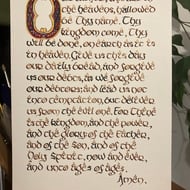 the heavens, hallowed
be Thy name. Thy
kingdom come, Thy
will be done, on earth as it is
in the heavens. Give us this day
our daily bread, and forgive
us our debts, as we forgive
our debtors; and lead us not
into temptation, but deliver
us from the evil one. For Thine
is the kingdom, and the power,
and the glory, of the Father,
and of the Son, and of the
Holy Spirit, now and ever,
and unto ages of ages.
Amen.